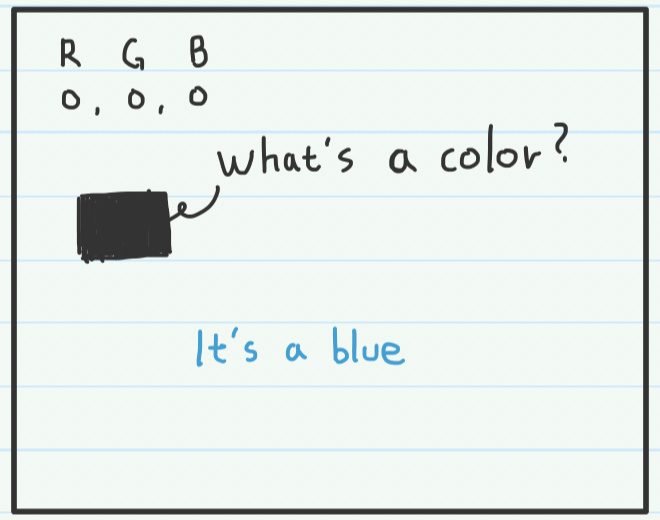 R G B
0, 0, 0
what's a color?
It's a blue